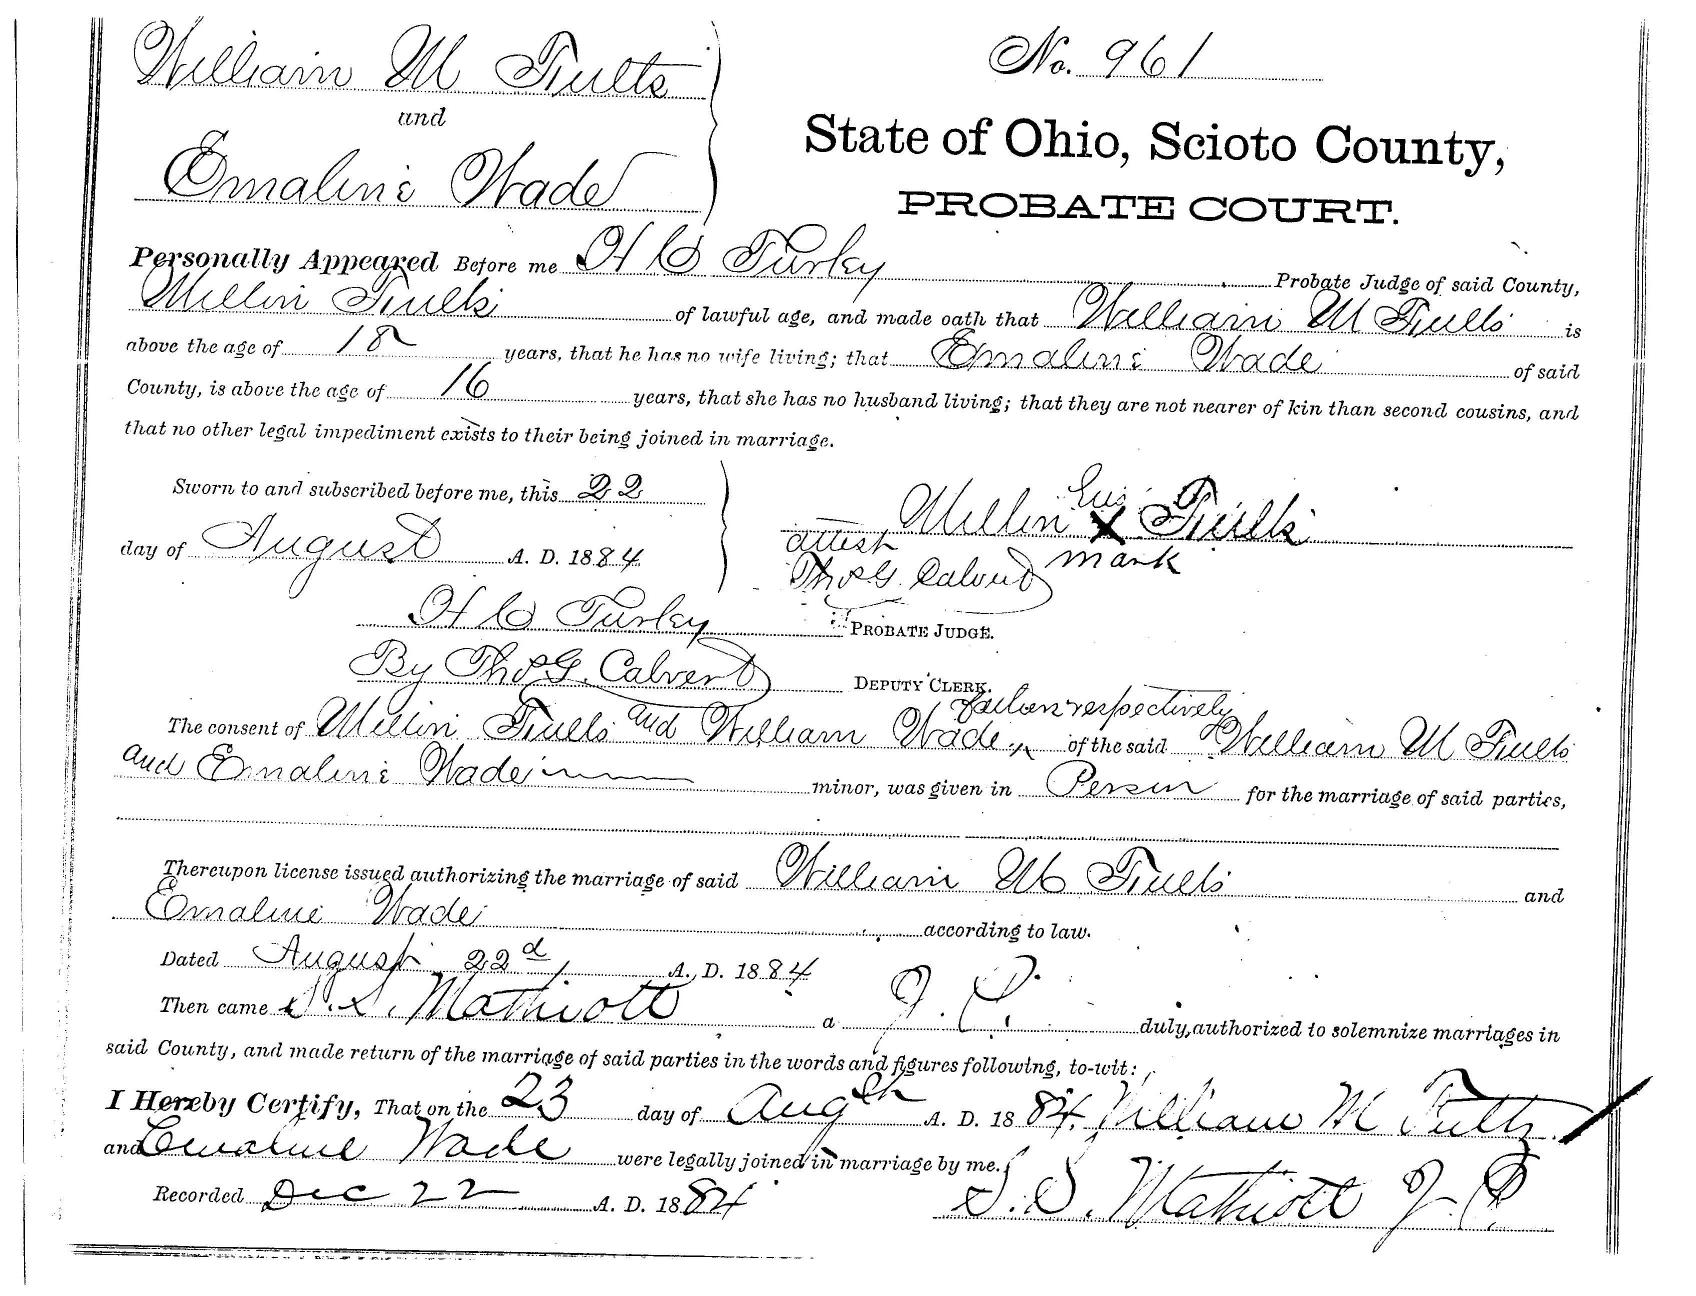 William M Fults
No. 961
and
State of Ohio, Scioto County,
Emaline Wade
PROBATE COURT.
Personally Appeared Before me H C Turley Probate Judge of said County,
Fults of lawful age, and made oath that William M Fults is
above the age of 18 years, that he has no wife living; that Emaline Wade of said
County, is above the age of 16 years, that she has no husband living; that they are not nearer of kin than second cousins, and
that no other legal impediment exists to their being joined in marriage.
Sworn to and subscribed before me, this 22
day of August A. D. 1884
his
X Fults
mark
attest
Thos G. Calvert
H C Turley PROBATE JUDGE.
By Thos G. Calvert DEPUTY CLERK.
respectively
The consent of Fults and William Wade of the said William M Fults
and Emaline Wade minor, was given in Person for the marriage of said parties,
Thereupon license issued authorizing the marriage of said William M Fults and
Emaline Wade according to law.
Dated August 22d A. D. 1884
Then came S. S. Mathiott a J. P. duly authorized to solemnize marriages in
said County, and made return of the marriage of said parties in the words and figures following, to-wit:
I Hereby Certify, That on the 23 day of Aug A. D. 1884. William M Fultz
and Emaline Wade were legally joined in marriage by me.
Recorded Dec 22 A. D. 1884
S. S. Mathiott J. P.